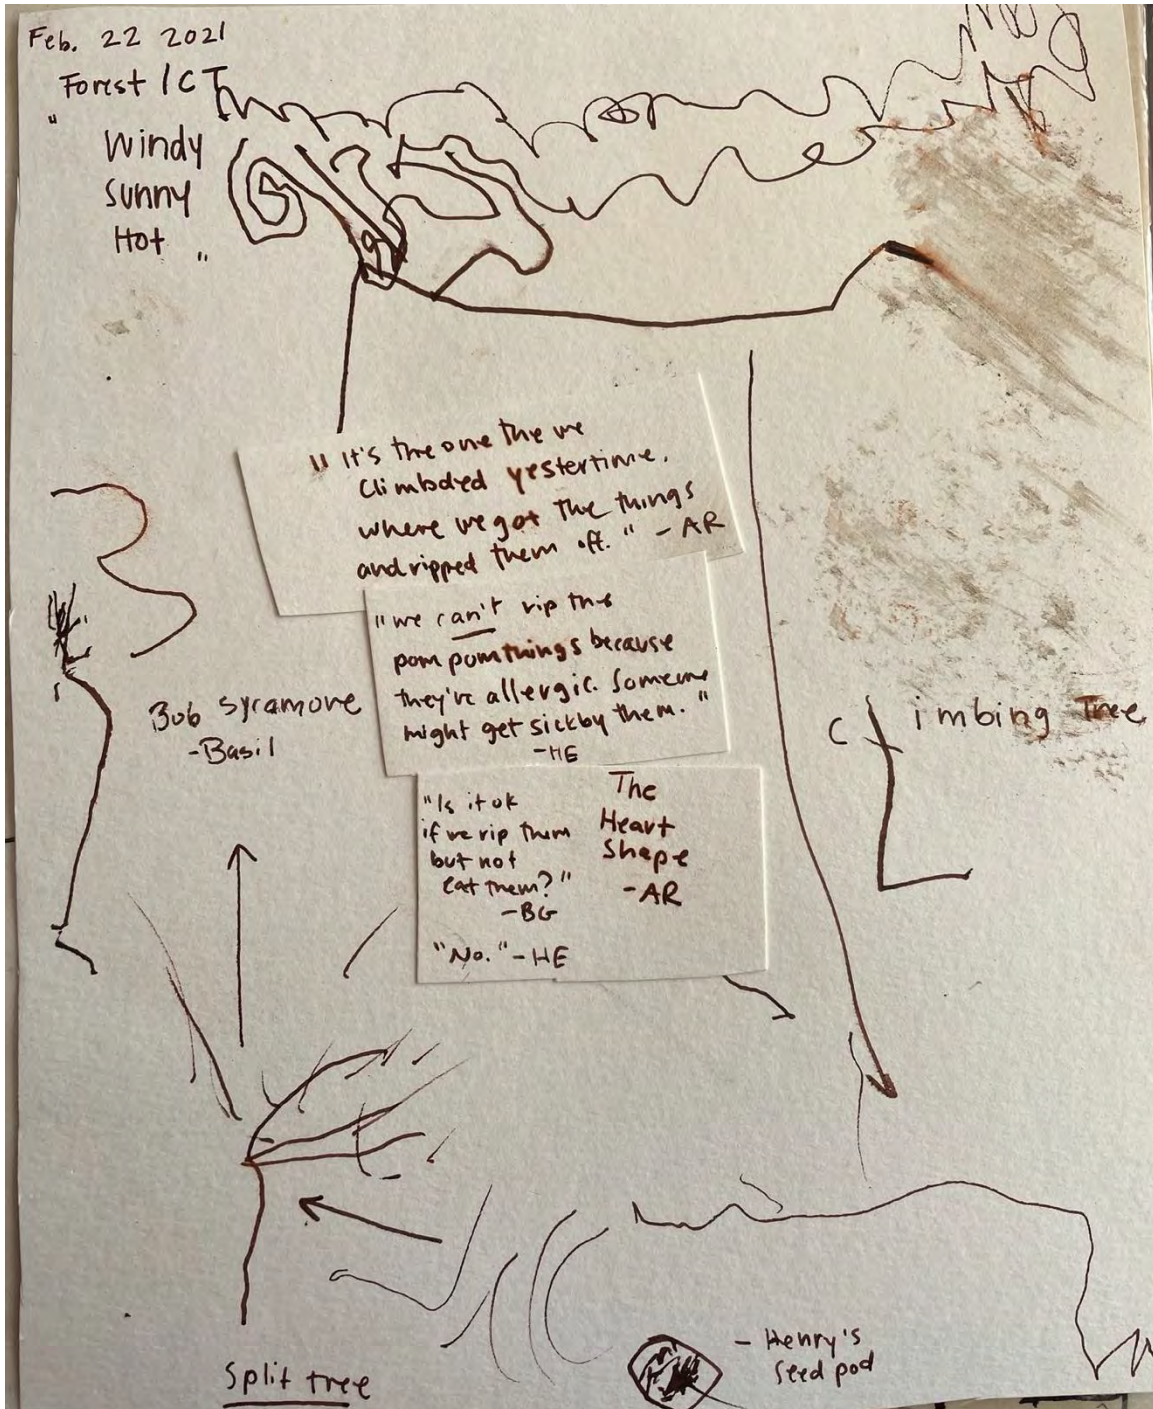 Feb. 22 2021
Forest / CT
" Windy
Sunny
Hot "
" It's the one the we
climbded yestertime.
where we got the things
and ripped them off. " - AR
"we can't rip the
pom pom things because
they're allergic. Someone
might get sick by them. "
- HE
"Is it ok
if we rip them
but not
eat them?"
- BG
"No." - HE
The
Heart
Shape
- AR
Bob sycamore
- Basil
CLimbing Tree
Split tree
- Henry's
seed pod